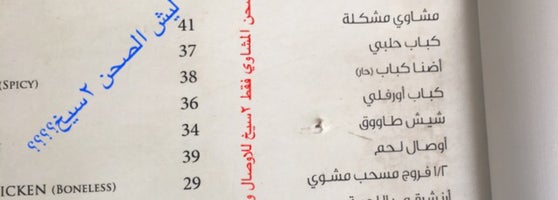 مشاوي مشكلة 41
كباب حلبي 37
أضنا كباب (حار) 38 (SPICY)
كباب اورفلي 36
شيش طاووق 34
أوصال لحم 39
١/٢ فروج مسحب مشوي 29 (BONELESS)
ليش الصحن ٢ سيخ؟؟؟؟؟
صحن المشاوي فقط ٢ سيخ للاوصال و